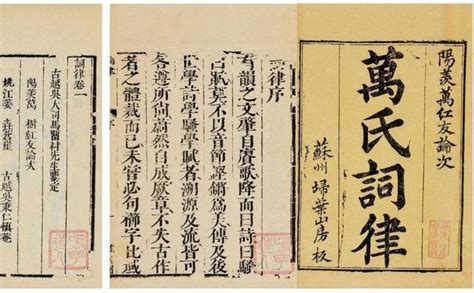 陽羨萬紅友論次
萬氏詞律
蘇州 埽葉山房 板
詞律序
韻之文肇自賡歌降而曰詩曰騷
曰賦莫不以音節諧鏘爲美傳及後
世學詩學騷學賦者溯源及流皆可
各遵所尚蔚然自成厥章不失古作
者之體裁而已未嘗必句櫛字
詞律卷一
古越吳大司馬留村先生鑒定
陽羨萬 樹紅友論次
姚江姜 垚蒼崖
古越吳秉仁慎菴